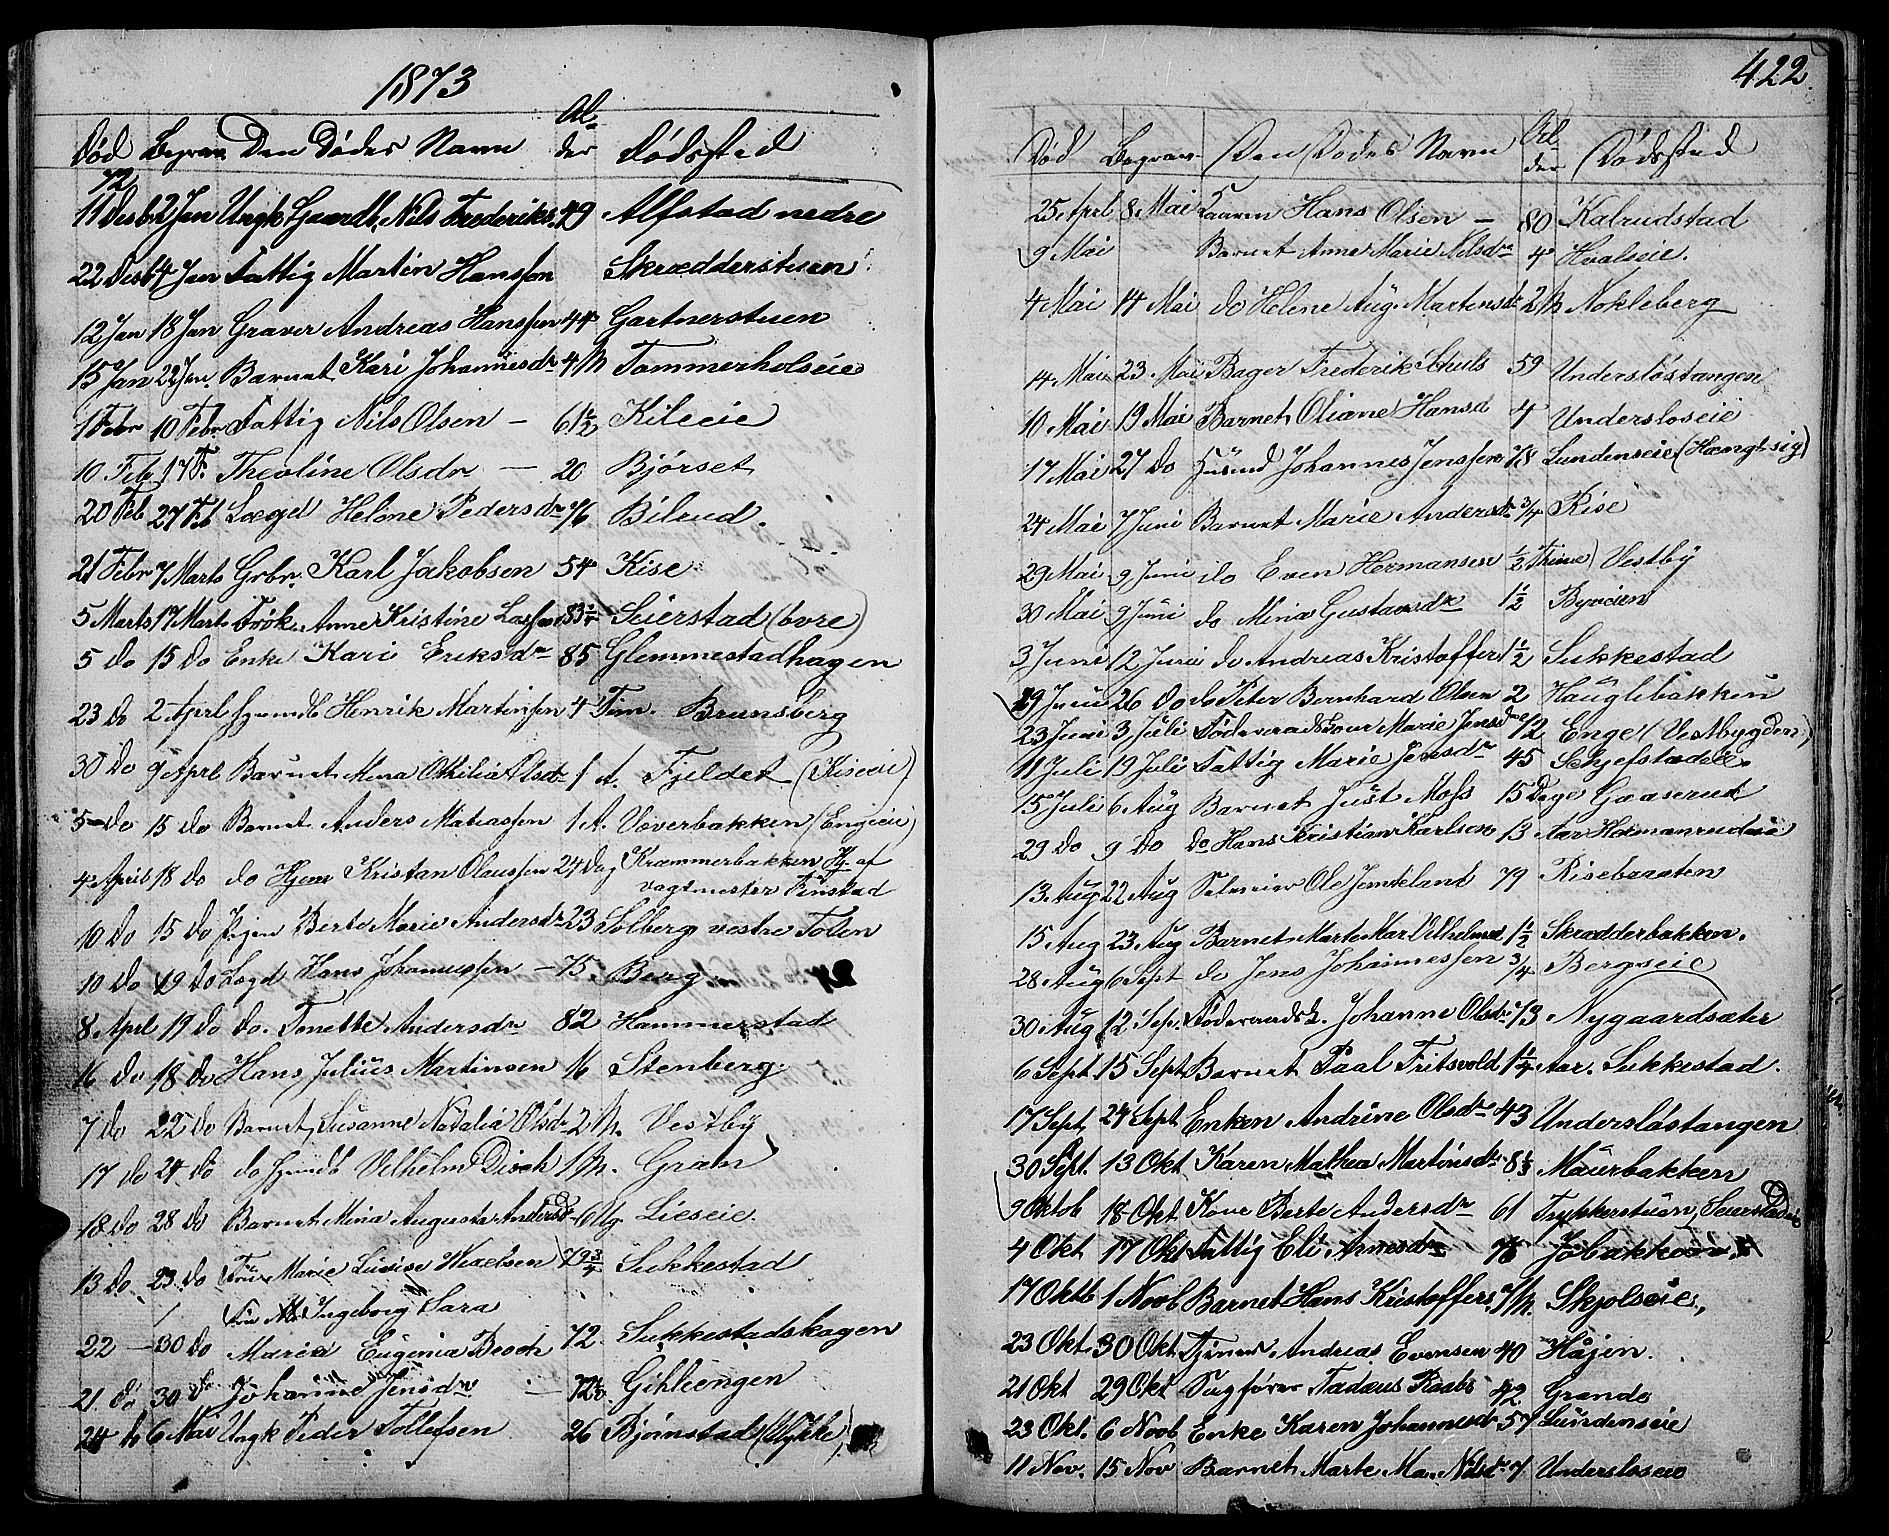 1873
Død Begrav Den Dødes Navn Al-der Dødsted
72
11 Desb 2 Jan Ungk Gaardb. Nils Frederiks. 49 Alfstad nedre
22 Desb 4 Jan Fattig Martin Hansson Skrædderstuen
12 Jan 18 Jan Graver Andreas Hanssen 44 Gartnerstuen
15 Jan 22 Jan. Barnet Kari Johannesdr 4 M Tømmerholseie
1 Febr 10 Febr Fattig Nils Olsen – 61½ Kileeie
10 Feb 17 F. Theoline Olsdr – 20 Bjørset
20 Feb 27 Feb Lægd Helene Pedersdr 76 Bilrud.
21 Febr 7 Marts Grbr. Karl Jakobsen 54 Kise
5 Marts 17 Marts Frøk. Anne Kristine Lassen 83 Seierstad (bore)
5 do 15 do Enke Kari Eriksdr 85 Glemmestadhagen
23 do 2 Aprl Gaardb Henrik Martinsen 4 Tim. Brunsberg
30 do 9 Aprl Barnet Mina Othilia Olsdr 1 A. Fjeldet (Kiseeie)
5 do 15 do Barnet Anders Matiassen 1 A. Væverbakken (Engeie)
4 April 18 do do Hjem Kristan Olaussen 24 Dag Krammerbakken Hj. af
vagtmester Finstad
10 do 15 do Pigen Berte Marie Andersdr 23 Solberg vestre Toten
10 do 19 do Lægd Hans Johannessen – 75. Berg.
8 Aprl 19 do do. Tonette Andersdr 82 Hammerstad
16 do 18 do Hans Julius Martinsen 16 Stenberg.
7 do 22 do Barnet Susanne Natalia Olsdr 2 M. Vestby
17 do 24 do do Vilhelm Disch 1 M. Gran
18 do 28 do Barnet Mina Augusta Andersdr 6 Ug. Lieseie.
13 do 23 do Fru Marie Luise Wexelsen 79¾ Sukkestad
Fru Ingeborg Sara
22 – 30 do Maria Eugenia Besch 72. Sukkestadskogen
21 do 30 do Johanne Jensdr – 72½ Gihleengen
24 do 6 Mai Ungk Peder Tollefsen 26 Bjørnstad (Mykle)
422.
Død Begrav Den Dødes Navn Al-der Dødsted
25 Aprl 8 Mai Hans Olsen – 80 Kalrudstad
9 Mai Barnet Anne Marie Nilsdr 4 Hvalseie.
4 Mai 14 Mai do Helene Aug. Martensdr 2 M Nokleberg
14 Mai 23 Mai Bager Frederik Schuls 59 Undersløstangen
10 Mai 19 Mai Barnet Oliane Hansd 4 Undersloseie
17 Mai 27 do Husmd Johannes Jenssen 78 Lundenseie (Hænghsig)
24 Mai 7 Juni Barnet Marie Andersdr ¾ Kise
29 Mai 9 Juni do Even Hermansen ½ Time Vestby
30 Mai 9 Juni do Mina Gustavsdr 1½ Byveien
3 Juni 12 Juni do Andreas Kristoffers 1½ Sukkestad
19 Juni 26 do do Peter Bernhard Olsen 2 Hauglibakken
23 Juni 3 Juli Føderaadskone Marie Jensdr 72 Enge (Vestbygden)
11 Juli 19 Juli Fattig Marie Jensdr 45 Schjefstadeie
15 Juli 6 Aug Barnet Just Moss 15 Dage Gaaserud
29 do 9 do do Hans Kristian Karlsen 13 Aar Hermanrudeie
13 Aug 22 Aug Selveier Ole Jemtland 79 Risebraaten
15 Aug 23 Aug Barnet Marte Mar. Vilhelmsd 1½ Skrædderbakken.
28 Aug 6 Sept do Jens Johannessen ¾ Bergseie
30 Aug 12 Sep. Føderaadsk. Johanne Olsdr 73 Nygaardsæter
6 Sept 15 Sept Barnet Paal Fritsvold 1¼ Aar. Sukkestad.
17 Sept 24 Sept Enken Andrine Olsdr 43 Undersløstangen
30 Sept. 13 Okt Karen Mathea Martinsdr 8⅓ Maurbakken
9 Oktob 18 Okt Kone Berte Andersdr 61 Trykkerstuen, Seierstad
4 Okt 17 Okt Fattig Eli Arnesdr 76 Jøbakken
17 Oktb 1 Novb Barnet Hans Kristoffers M. Skjolseie,
23 Okt. 30 Okt Tjener Andreas Evensen 40 Håjen.
21 Okt 29 Okt Sagfører Tadæus Raabe 42 Grande
23 Okt. 6 Novb Enke Karen Johannesdr 57 Lundenseie
11 Nov. 15 Nov Barnet Marte Ma. Nilsdr 7 Undersloseie